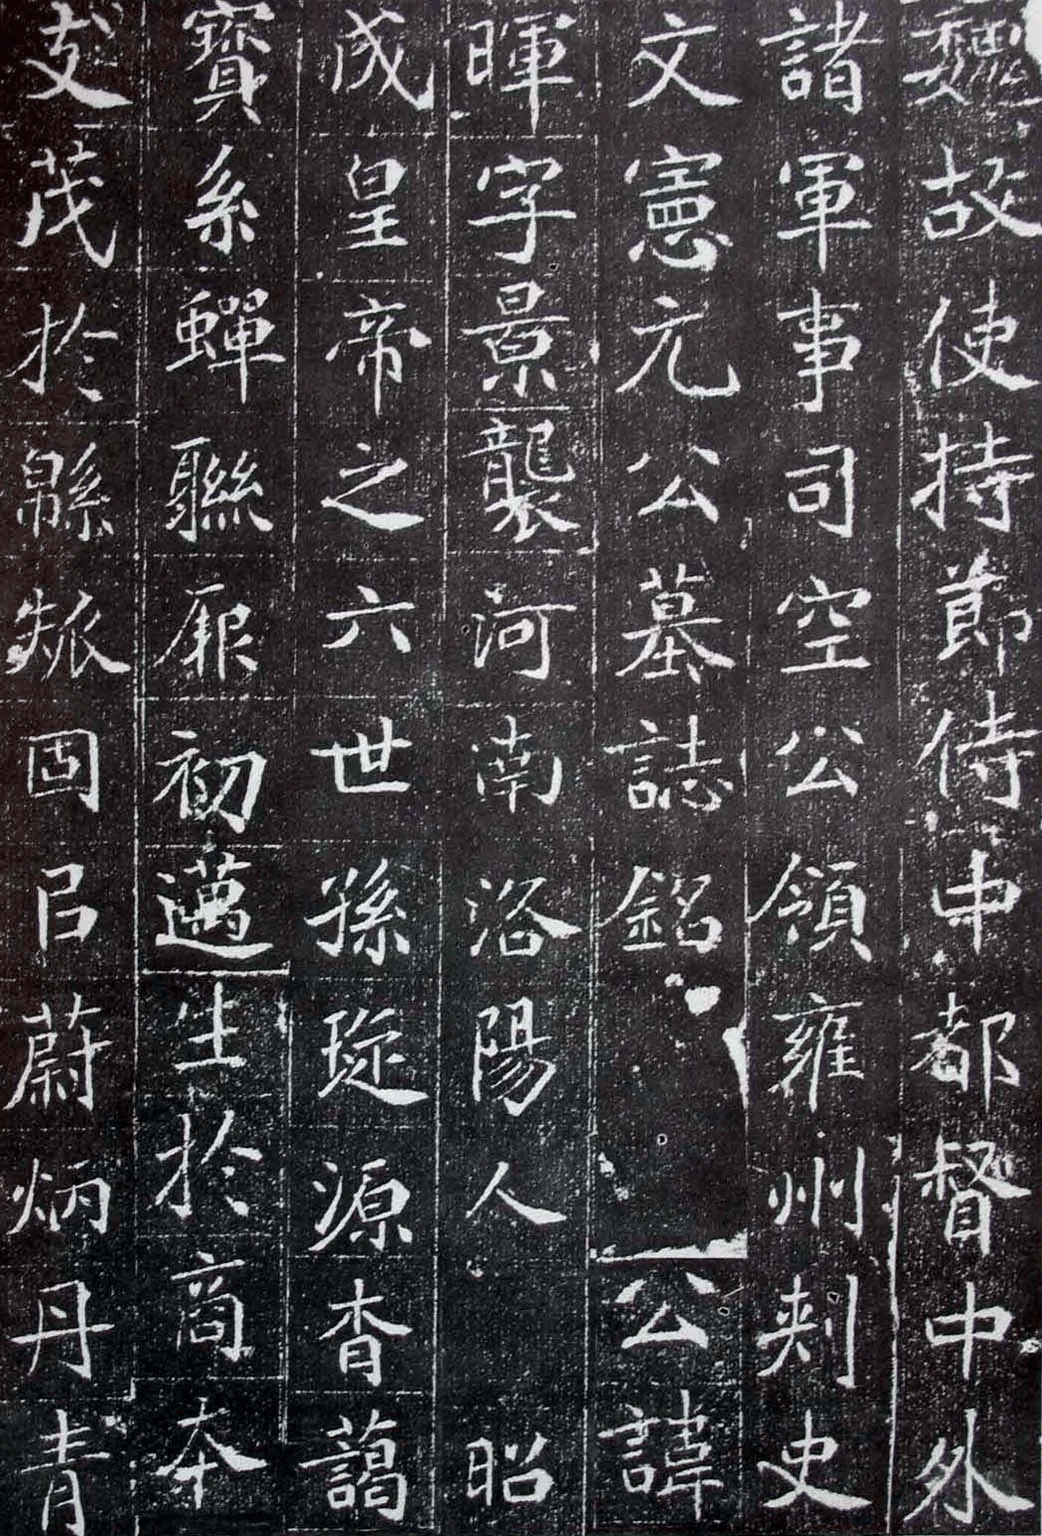 魏故使持節侍中都督中外
諸軍事司空公領雍州刺史
文憲元公墓誌銘 公諱
暉字景襲河南洛陽人 昭
成皇帝之六世孫琁源杳藹
寶系蟬聯厥初邁生於商本
支茂於緜瓞固㠯蔚炳丹青